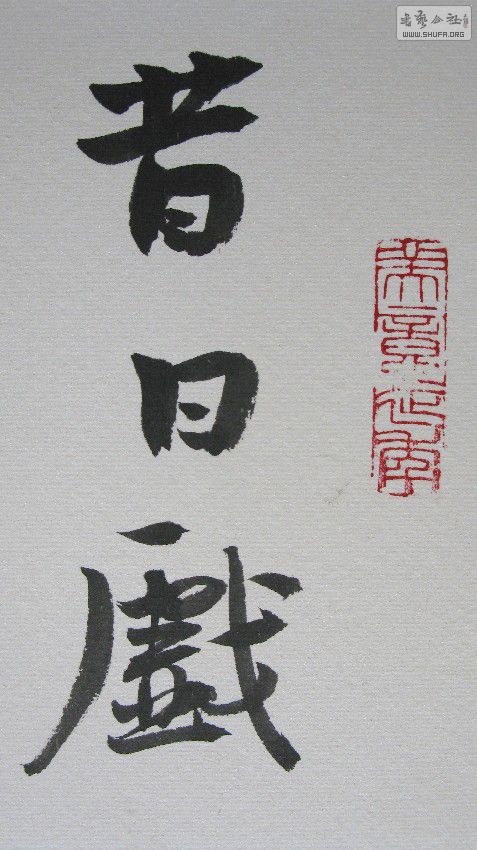 昔日戲
书艺公社
WWW.SHUFA.ORG